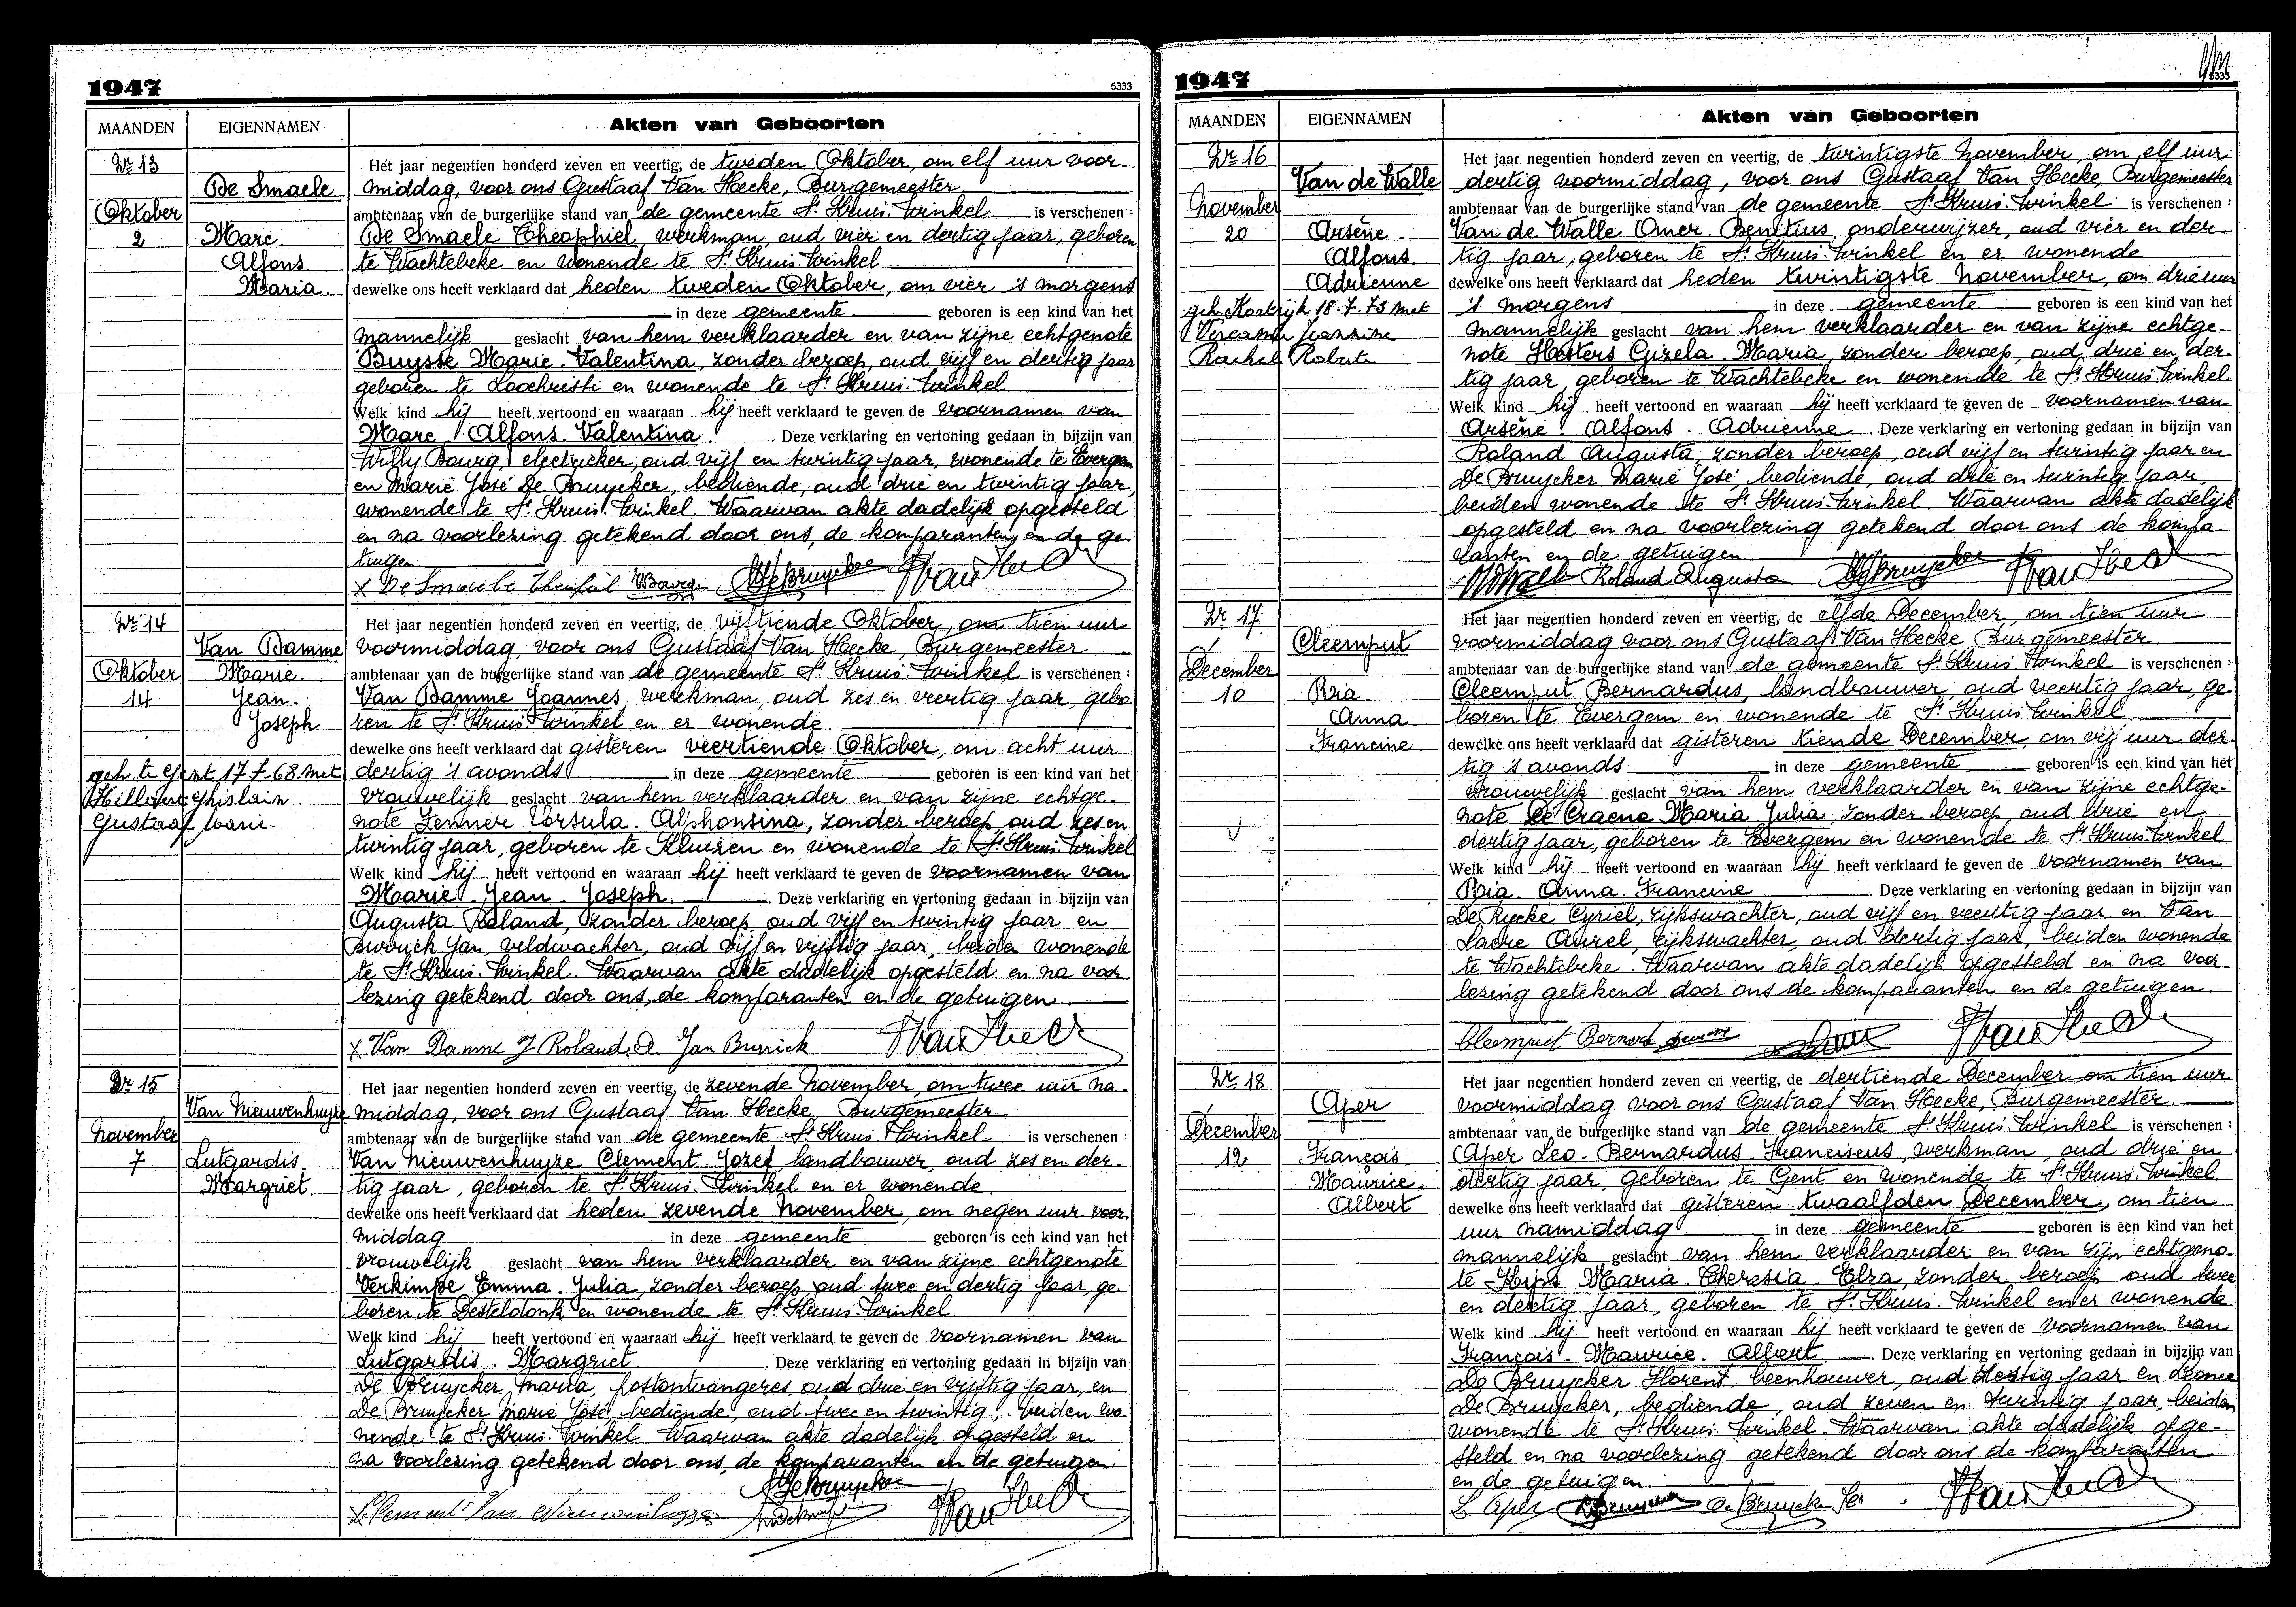 1947
5333
MAANDEN
EIGENNAMEN
Akten van Geboorten
Nr 13
De Smaele
Oktober
2
Marc.
Alfons.
Maria.
Het jaar negentien honderd zeven en veertig, de tweden Oktober, om elf uur voor-
middag, voor ons Gustaaf Van Hecke, Burgemeester
ambtenaar van de burgerlijke stand van de gemeente St Kruis-Winkel is verschenen :
De Smaele Theophiel, werkman, oud vier en dertig jaar, geboren
te Wachtebeke en wonende te St Kruis-Winkel
dewelke ons heeft verklaard dat heden tweden Oktober, om vier 's morgens
in deze gemeente geboren is een kind van het
mannelijk geslacht van hem verklaarder en van zijne echtgenote
Buysse Marie-Valentina, zonder beroep, oud vijf en dertig jaar
geboren te Loochristi en wonende te St Kruis-Winkel.
Welk kind hij heeft vertoond en waaraan hij heeft verklaard te geven de voornamen van
Marc, Alfons. Valentina. Deze verklaring en vertoning gedaan in bijzijn van
Willy Bourg, electrieker, oud vijf en twintig jaar, wonende te Evergem
en Marie José De Bruycker, bediende, oud drie en twintig jaar,
wonende te St Kruis-Winkel. Waarvan akte dadelijk opgesteld
en na voorlezing getekend door ons, de komparanten en de ge-
tuigen
x De Smaele Theofiel WBourg DeBruycker Van Hecke
Nr 14
Van Damme
Oktober
14
Marie.
Jean.
Joseph
geh. te Gent 17-7-68 met
Ghislain
Gustaaf Marie.
Het jaar negentien honderd zeven en veertig, de vijftiende Oktober, om tien uur
voormiddag, voor ons Gustaaf Van Hecke, Burgemeester
ambtenaar van de burgerlijke stand van de gemeente St Kruis-Winkel is verschenen :
Van Damme Joannes, werkman, oud zes en veertig jaar, gebo-
ren te St Kruis-Winkel en er wonende.
dewelke ons heeft verklaard dat gisteren veertiende Oktober, om acht uur
dertig 's avonds in deze gemeente geboren is een kind van het
vrouwelijk geslacht van hem verklaarder en van zijne echtge-
note Zenner Ursula. Alphonsina, zonder beroep oud zes en
twintig jaar, geboren te Kluizen en wonende te St Kruis-Winkel
Welk kind hij heeft vertoond en waaraan hij heeft verklaard te geven de voornamen van
Marie. Jean. Joseph. Deze verklaring en vertoning gedaan in bijzijn van
Augusta Roland, zonder beroep, oud vijf en twintig jaar en
Burrick Jan, veldwachter, oud vijf en vijftig jaar, beiden wonende
te St Kruis-Winkel. Waarvan akte dadelijk opgesteld en na voor-
lezing getekend door ons, de komparanten en de getuigen
x Van Damme J Roland. A. Jan Burrick Van Hecke
Nr 15
Van Nieuwenhuyze
November
7
Lutgardis.
Margriet.
Het jaar negentien honderd zeven en veertig, de zevende November, om twee uur na-
middag, voor ons Gustaaf Van Hecke, Burgemeester
ambtenaar van de burgerlijke stand van de gemeente St Kruis-Winkel is verschenen :
Van Nieuwenhuyze Clement-Jozef, landbouwer, oud zes en der-
tig jaar, geboren te St Kruis-Winkel en er wonende.
dewelke ons heeft verklaard dat heden zevende November, om negen uur voor-
middag in deze gemeente geboren is een kind van het
vrouwelijk geslacht van hem verklaarder en van zijne echtgenote
Verkimpe Emma. Julia, zonder beroep, oud twee en dertig jaar, ge-
boren te Desteldonk en wonende te St Kruis-Winkel
Welk kind hij heeft vertoond en waaraan hij heeft verklaard te geven de voornamen van
Lutgardis. Margriet. Deze verklaring en vertoning gedaan in bijzijn van
De Bruycker Maria, postontvangeres, oud drie en vijftig jaar, en
De Bruycker Marie José, bediende, oud twee en twintig, beiden wo-
nende te St Kruis-Winkel. Waarvan akte dadelijk opgesteld en
na voorlezing getekend door ons, de komparanten en de getuigen.
DeBruycker
x Clement Van Nieuwenhuyze Van Hecke
1947
5333
MAANDEN
EIGENNAMEN
Akten van Geboorten
Nr 16
Van de Walle
November
20
Arsène.
Alfons.
Adrienne
geh. Kortrijk 18-7-73 met
Rachel Roberta
Het jaar negentien honderd zeven en veertig, de twintigste November, om elf uur
dertig voormiddag, voor ons Gustaaf Van Hecke, Burgemeester
ambtenaar van de burgerlijke stand van de gemeente St Kruis-Winkel is verschenen :
Van de Walle Omer. Benitius, onderwijzer, oud vier en der-
tig jaar, geboren te St Kruis-Winkel en er wonende
dewelke ons heeft verklaard dat heden twintigste November, om drie uur
's morgens in deze gemeente geboren is een kind van het
mannelijk geslacht van hem verklaarder en van zijne echtge-
note Hesters Girela. Maria, zonder beroep, oud drie en der-
tig jaar, geboren te Wachtebeke en wonende te St Kruis-Winkel
Welk kind hij heeft vertoond en waaraan hij heeft verklaard te geven de voornamen van
Arsène. Alfons. Adrienne. Deze verklaring en vertoning gedaan in bijzijn van
Roland Augusta, zonder beroep, oud vijf en twintig jaar en
De Bruycker Marie José, bediende, oud drie en twintig jaar,
beiden wonende te St Kruis-Winkel. Waarvan akte dadelijk
opgesteld en na voorlezing getekend door ons de kompa-
ranten en de getuigen
Roland Augusta DeBruycker Van Hecke
Nr 17
Cleemput
December
10
Ria.
Anna.
Francine.
Het jaar negentien honderd zeven en veertig, de elfde December, om tien uur
voormiddag voor ons Gustaaf Van Hecke Burgemeester
ambtenaar van de burgerlijke stand van de gemeente St Kruis Winkel is verschenen :
Cleemput Bernardus, landbouwer, oud veertig jaar, ge-
boren te Evergem en wonende te St Kruis Winkel
dewelke ons heeft verklaard dat gisteren tiende December, om vijf uur der-
tig 's avonds in deze gemeente geboren is een kind van het
vrouwelijk geslacht van hem verklaarder en van zijne echtge-
note De Craene Maria Julia, zonder beroep, oud drie en
dertig jaar, geboren te Evergem en wonende te St Kruis-Winkel
Welk kind hij heeft vertoond en waaraan hij heeft verklaard te geven de voornamen van
Ria. Anna. Francine. Deze verklaring en vertoning gedaan in bijzijn van
De Rycke Cyriel, rijkswachter, oud vijf en veertig jaar en Van
Laere Aurel, rijkswachter, oud dertig jaar, beiden wonende
te Wachtebeke. Waarvan akte dadelijk opgesteld en na voor-
lezing getekend door ons de komparanten en de getuigen.
Cleemput Bernard Van Hecke
Nr 18
Aper
December
12
François.
Maurice.
Albert
Het jaar negentien honderd zeven en veertig, de dertiende December om tien uur
voormiddag voor ons Gustaaf Van Hecke, Burgemeester.
ambtenaar van de burgerlijke stand van de gemeente St Kruis-Winkel is verschenen :
Aper Leo. Bernardus. Franciscus, werkman, oud drie en
dertig jaar, geboren te Gent en wonende te St Kruis-Winkel.
dewelke ons heeft verklaard dat gisteren twaalfden December, om tien
uur namiddag in deze gemeente geboren is een kind van het
mannelijk geslacht van hem verklaarder en van zijn echtgeno-
te Kips Maria. Theresia. Elza, zonder beroep oud twee
en dertig jaar, geboren te St Kruis-Winkel en er wonende.
Welk kind hij heeft vertoond en waaraan hij heeft verklaard te geven de voornamen van
François. Maurice. Albert. Deze verklaring en vertoning gedaan in bijzijn van
De Bruycker Florent, beenhouwer, oud dertig jaar en Leonce
De Bruycker, bediende, oud zeven en twintig jaar, beiden
wonende te St Kruis-Winkel. Waarvan akte dadelijk opge-
steld en na voorlezing getekend door ons de komparanten
en de getuigen
L Aper DeBruycker De Bruycker Van Hecke